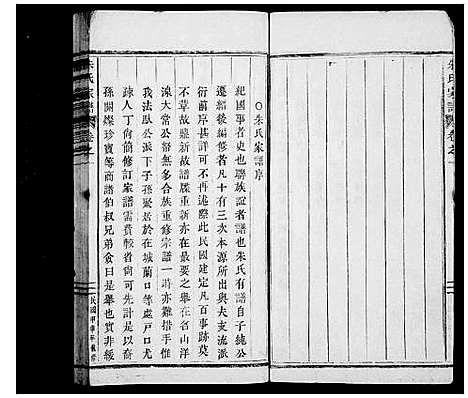 朱氏家譜序
紀國事者史也聯族誼者譜也朱氏有譜自子純公
遷紹後編修者凡十有三次本源所出與夫支流派
衍前序甚詳可不再述際此民國建定凡百事跡莫
不草故鼎新故譜牒重新亦在最要之舉在名山洋
湶大常公督無多合族重修宗譜一時亦難措手惟
我法臥公派下子孫聚居於在城蘭口等處戶口尤
疎人丁尚簡修訂家譜需費較省尚可先計是以裔
孫關燦珍寶等商諸伯叔兄弟僉曰是舉也實非緩
朱氏家譜
卷之一
朱氏家譜
卷之一